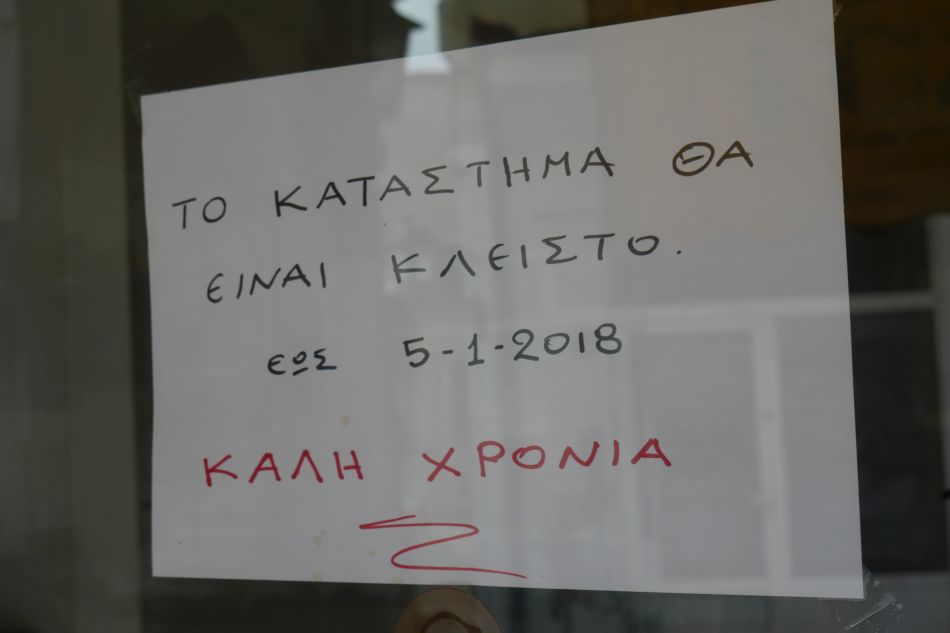 ΤΟ ΚΑΤΑΣΤΗΜΑ ΘΑ
ΕΙΝΑΙ ΚΛΕΙΣΤΟ.
ΕΩΣ 5-1-2018
ΚΑΛΗ ΧΡΟΝΙΑ